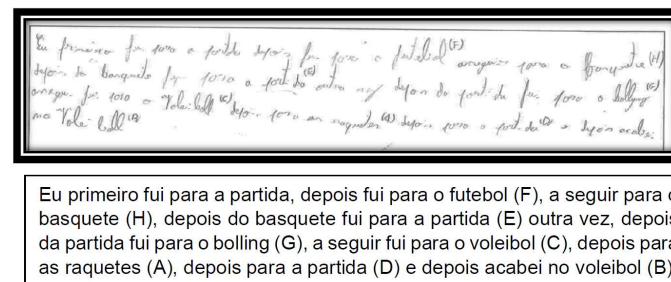 Eu primeiro fui para a partida depois fui para o futebol (F) a seguir para o basquete (H)
depois do basquete fui para a partida (E) outra vez depois da partida fui para o bolling (G)
a seguir fui para o Volei-ball (C) depois para as raquetes (A) depois para a partida (D) e depois acabei
no Volei-ball (B)
Eu primeiro fui para a partida, depois fui para o futebol (F), a seguir para o
basquete (H), depois do basquete fui para a partida (E) outra vez, depois
da partida fui para o bolling (G), a seguir fui para o voleibol (C), depois para
as raquetes (A), depois para a partida (D) e depois acabei no voleibol (B)